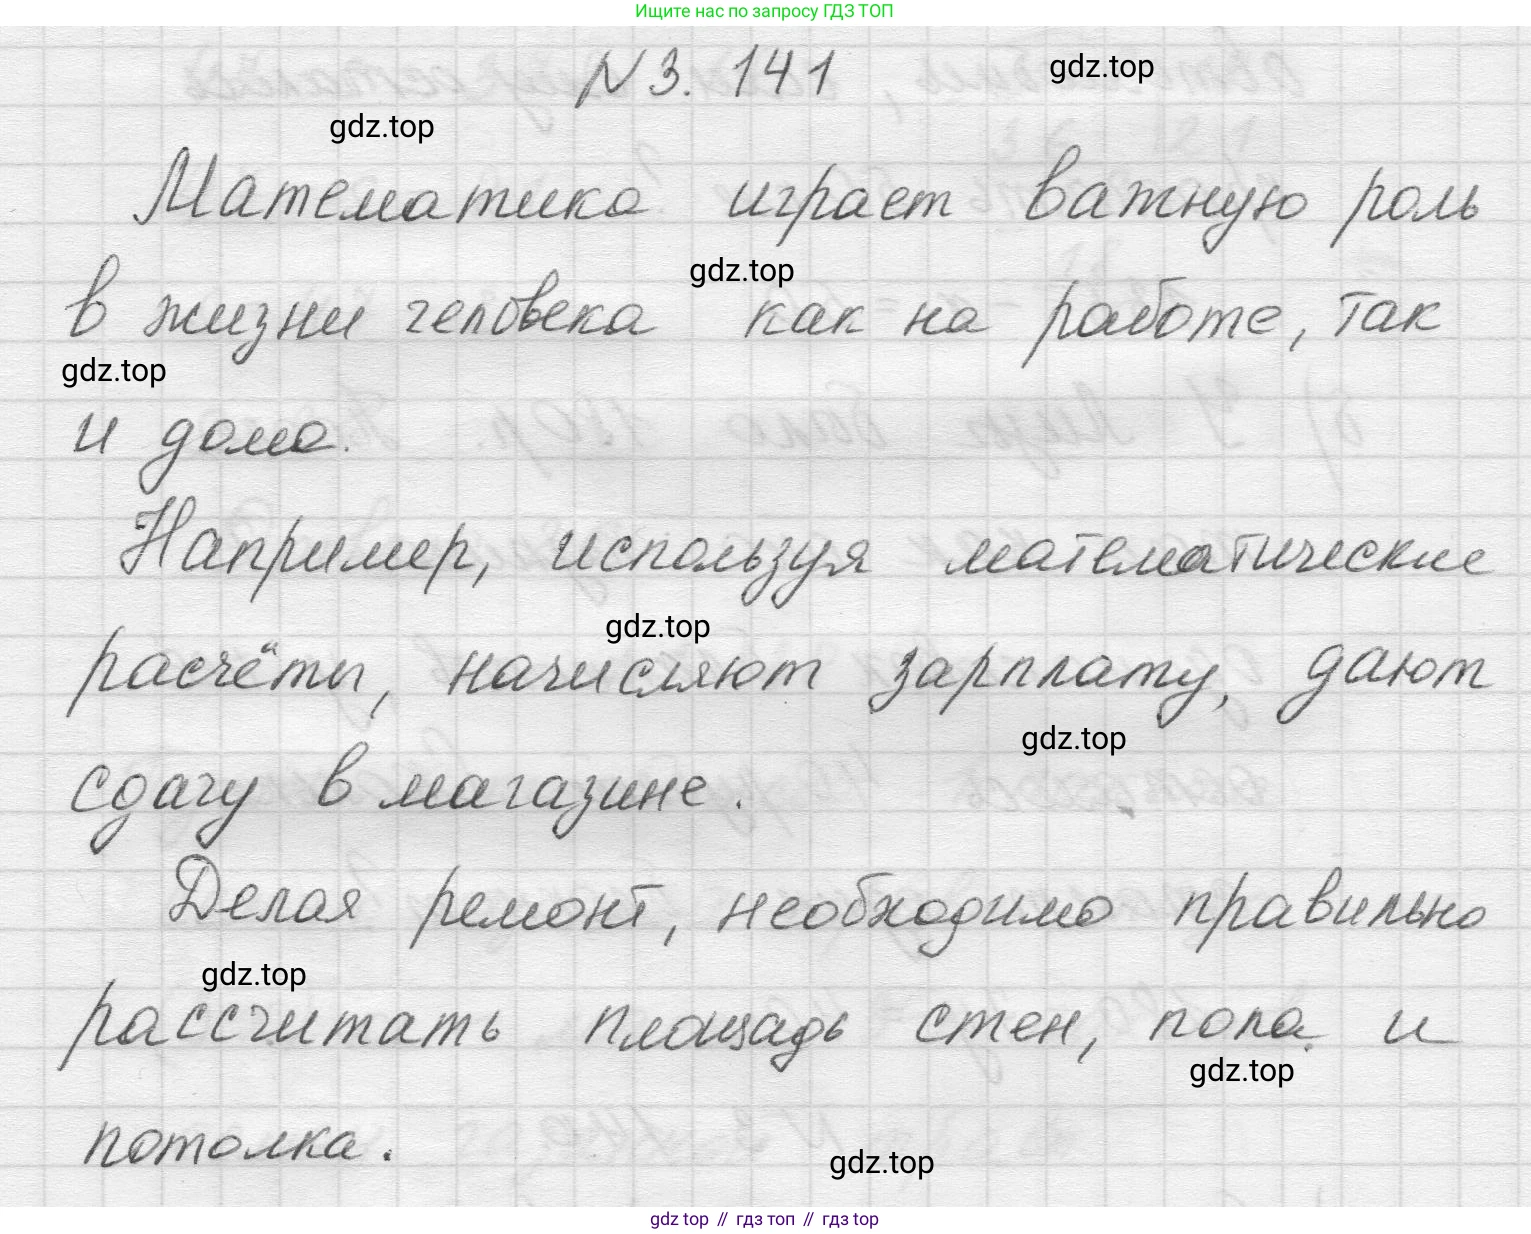 Ищите нас по запросу ГДЗ ТОП
N 3. 141
gdz.top
gdz.top
Математика играет важную роль
gdz.top
в жизни человека как на работе, так
gdz.top
и дома.
Например, используя математические
gdz.top
расчёты, начисляют зарплату, дают
gdz.top
сдачу в магазине.
Делая ремонт, необходимо правильно
gdz.top
рассчитать площадь стен, пола и
gdz.top
потолка.
gdz.top
gdz top // гдз топ // гдз top